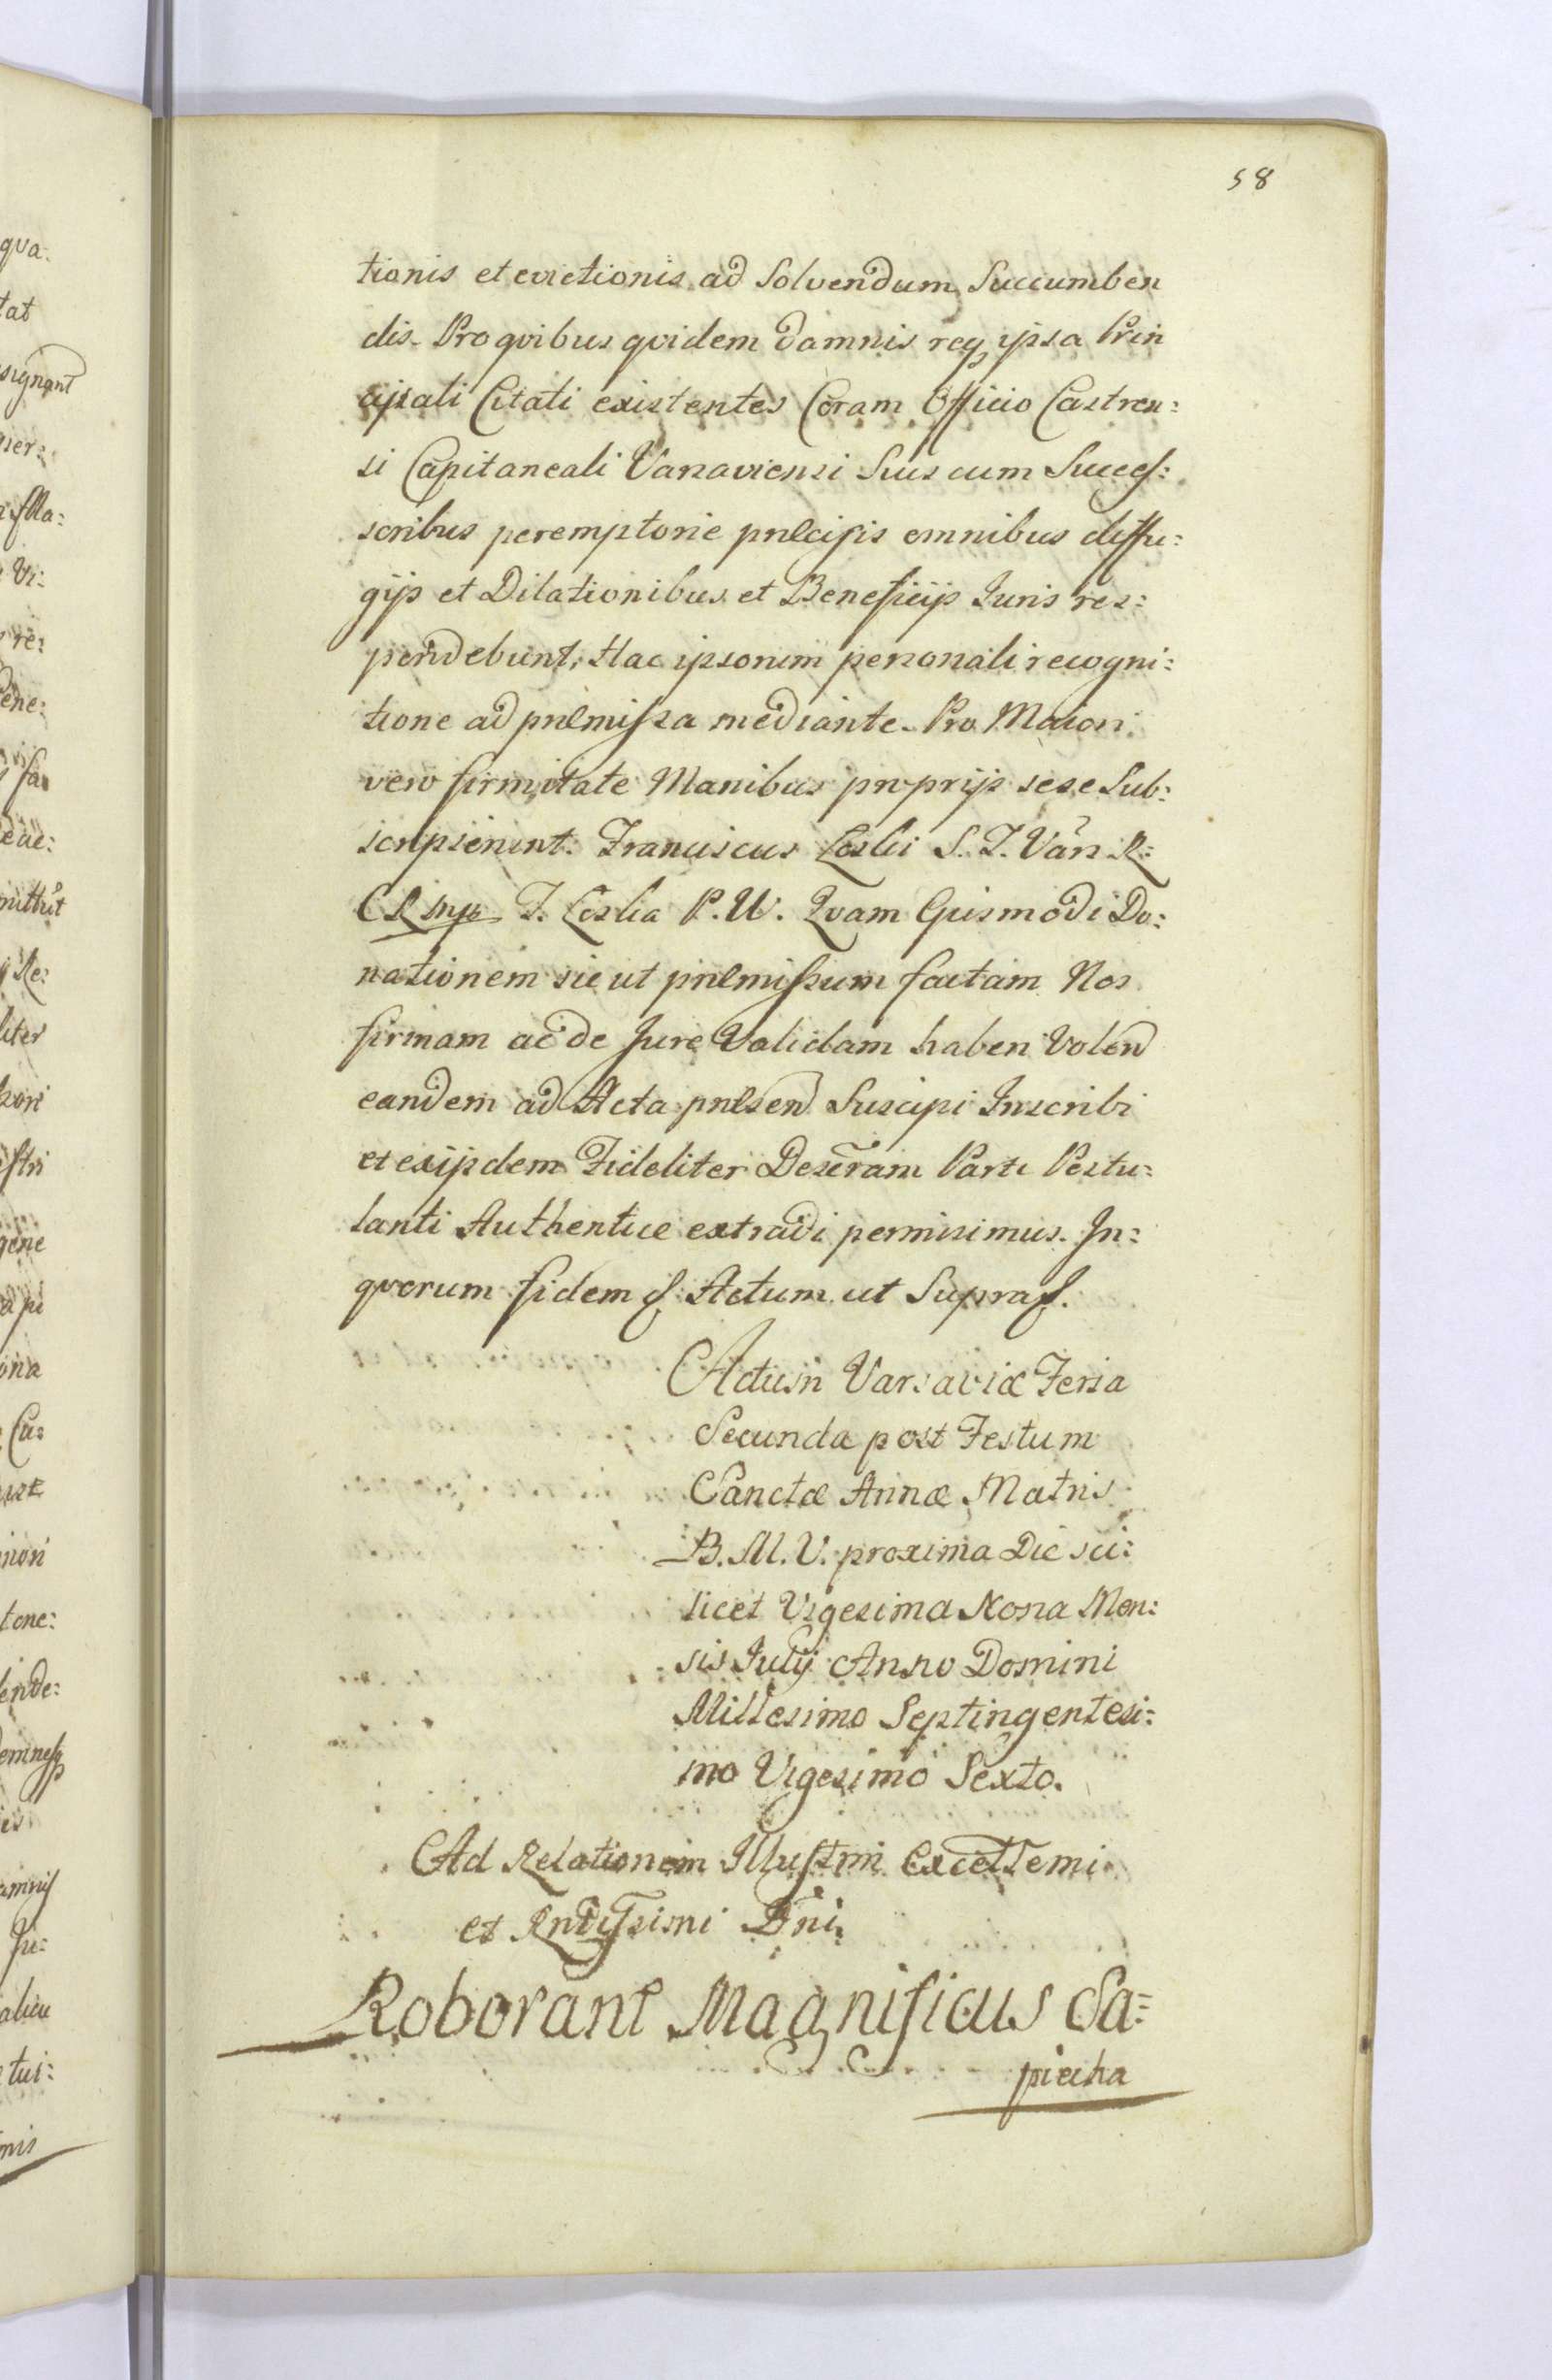 58
tionis et evictionis ad Solvendum Succumben
dis. Pro qvibus qvidem damnis req ipsa Prin
cipali Citati existentes Coram Officio Castren:
si Capitaneali Varsaviensi Suis cum Success:
soribus peremptorie prlecisis omnibus diffu:
gijs et Dilationibus et Beneficijs Juris res:
pondebunt, Hac ipsorum personali recogni:
tione ad prlemissa mediante. Pro Maiori
vero firmitate Manibus proprijs sese Sub:
scripserunt. Franciscus Leslii S. J. Vars R:
CL mp J. Leslia P. W. Qvam Gvismodi Do:
nationem sic ut prlemissum factam Nos
firmam ac de Jure Validam haberi Volen
eandem ad Acta prlesen Suscipi Inscribi
et exijsdem Fideliter Descram Parti Postu:
lanti Authentice extradi permisimus. In:
qvorum fidem Actum ut Supra
Actum Varsaviæ Feria
Secunda post Festum
Sanctæ Annæ Matris
B. M. V. proxima Die sci:
licet Vigesima Nona Men:
sis Julij Anno Domini
Millesimo Septingentesi:
mo Vigesimo Sexto.
Ad Relationem Illustrmi Excellemi
et Rndissimi Dni
Roborant Magnificus Sa:
piecha